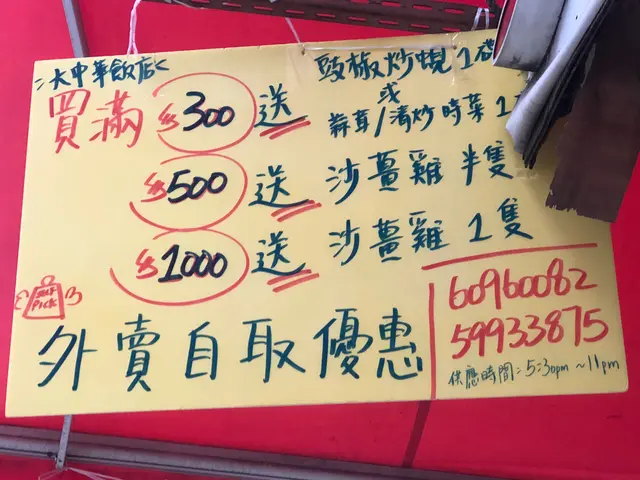 大中華飯店
買滿 $300 送 豉椒炒蜆 1
或
蒜茸/清炒 時菜 1
$500 送 沙薑雞 半隻
$1000 送 沙薑雞 1隻
SELF PICK
外賣自取優惠
60960082
59933875
供應時間:5:30pm ~ 11pm